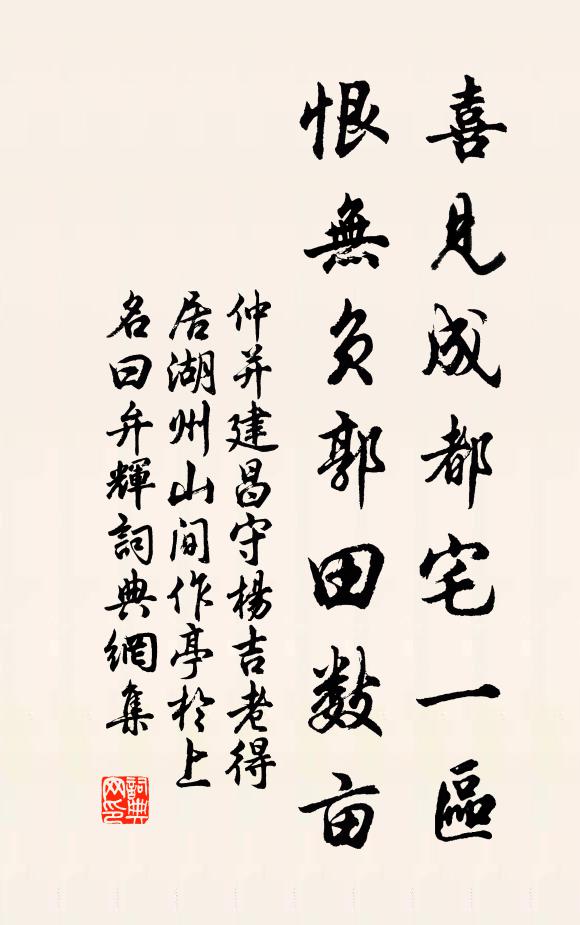 喜見成都宅一區
恨無負郭田數亩
仲并建昌守楊吉老得
居湖州山间作亭於上
名曰弁輝詞典網集
詞典網印